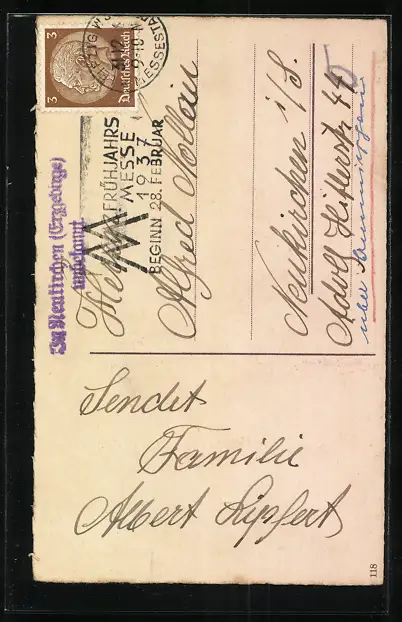 3 Deutsches Reich 3
LEIPZIG
31.12
MESSESTADT
FRÜHJAHRS
MESSE
1937
BEGINN 28. FEBRUAR
In Neukirchen (Erzgebirge)
unbekannt
Alfred
Neukirchen i/S.
Adolf Hitlerstr 44
über
Sendet
Familie
Albert Lipfert
118